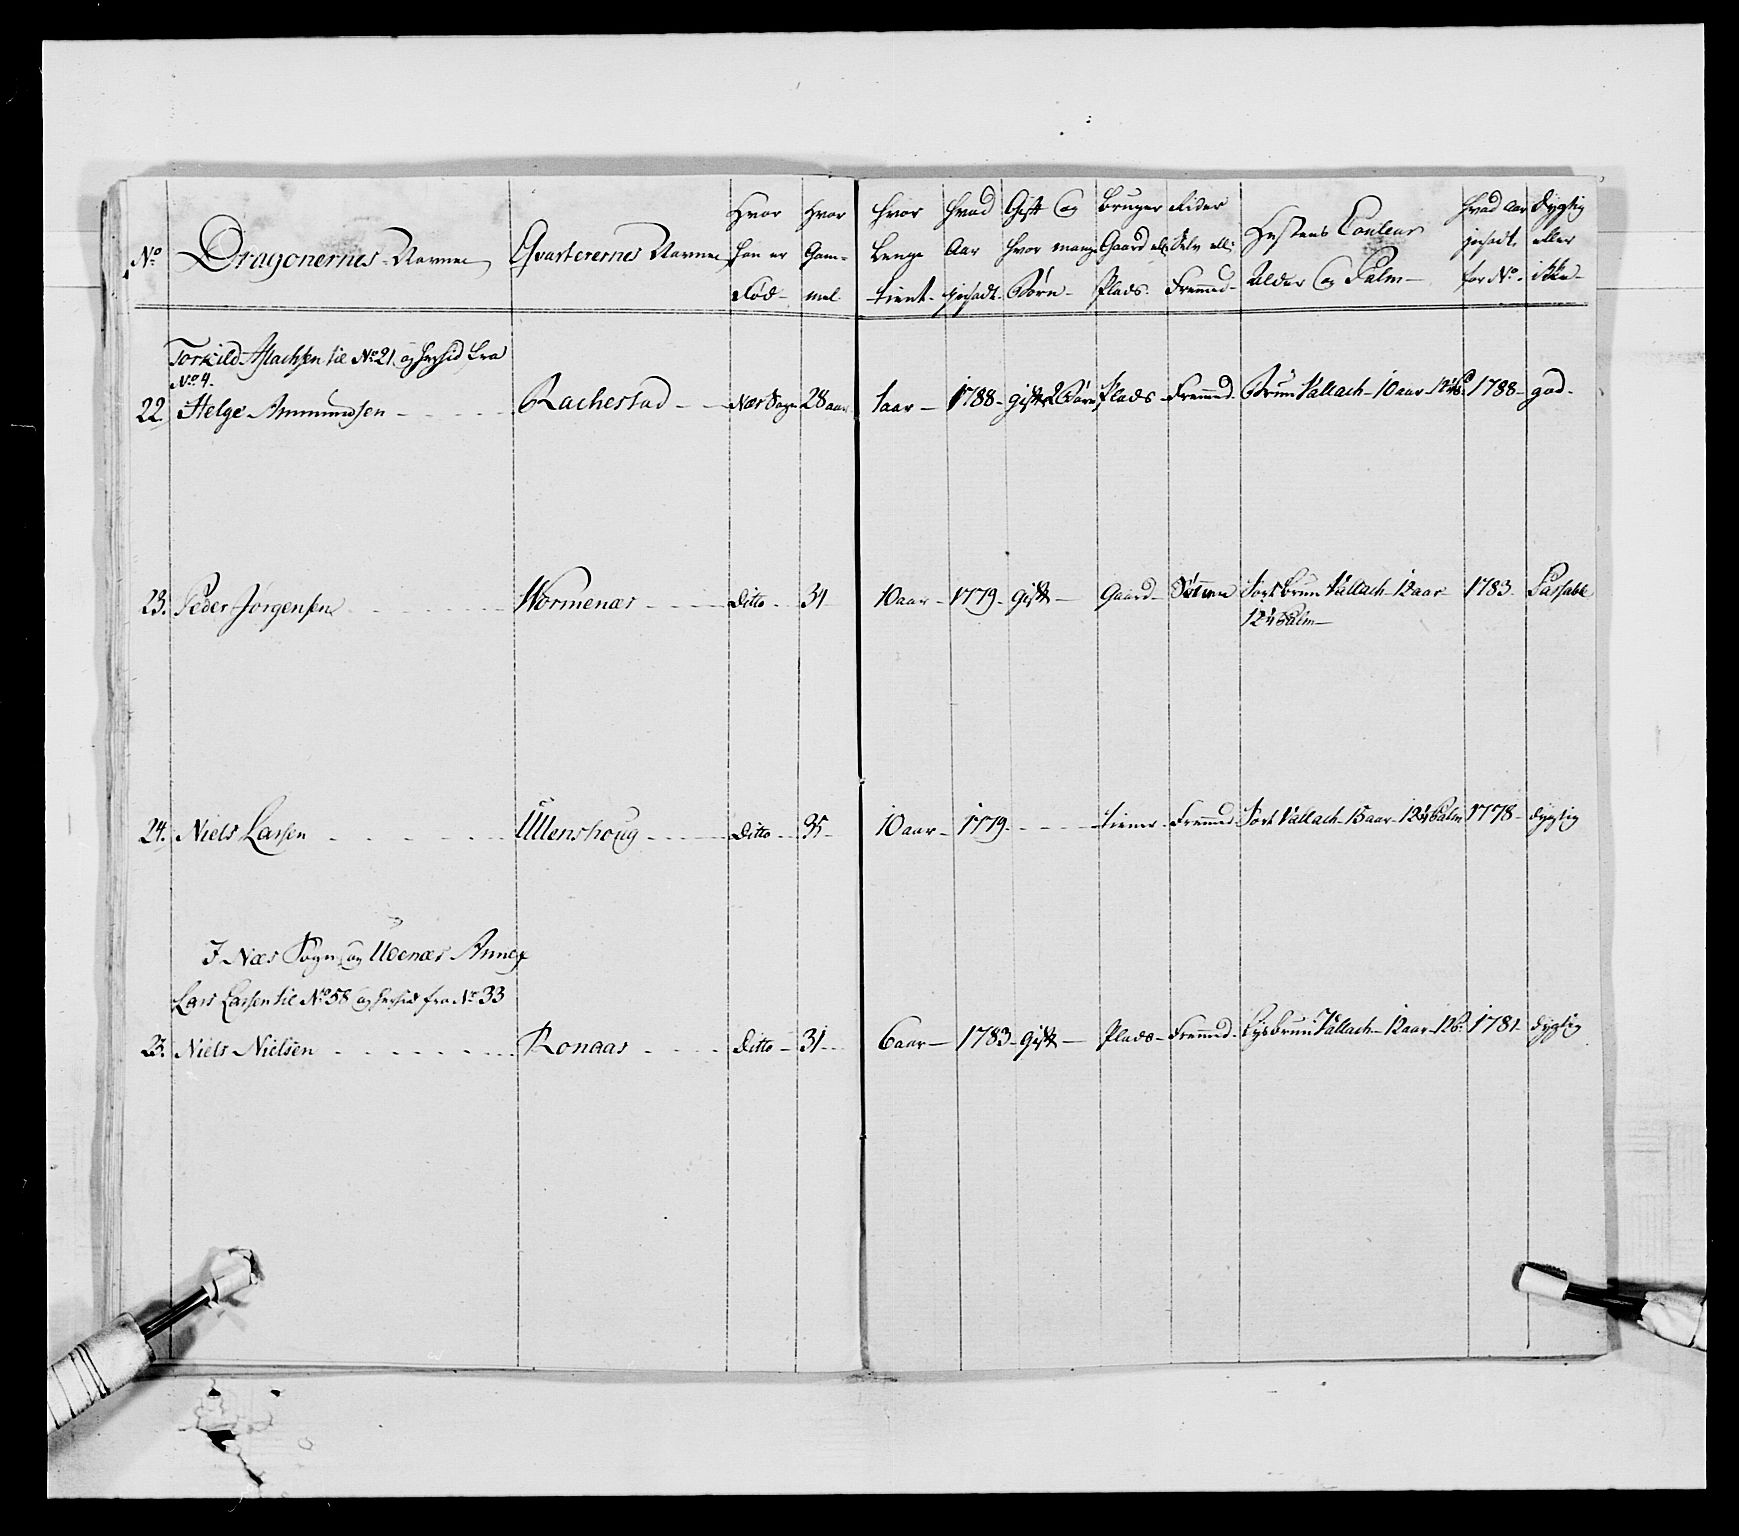 No Dragonernes Navne Qvarterernes Navne Hvor han er Fød Hvor Gammel hvor Lenge tient hvad Aar indsadt Gift og hvor mange Børn Bruger Gaard ell Plads Rider Selv ell: Fremed Hestens Couleur Alder og Palm hvad aar indsadt for No dygtig eller ikke
Torkild Aslachsen til No 21 og hersid fra
No 4.
22. Helge Ammundsen Rachestad Næs Sogn 28 aar 1 aar 1788 gift 2 Børn Plads Fremed Brun Vallach 10 aar 1788 god
23. Peder Jørgensen Wormenæs ditto 34 10 aar 1779 gift Gaard Sort brun Vallach 12 aar 1783 Passable
12¼ Palm
24. Niels Larsen Ullenshoug ditto 35 10 aar 1779 tiener Fremed Sort Vallach 15 aar 12¼ Palm 1778 dygtig
I Næs Sogn og Udenæs Annex
Lars Larsen til No 58 og hersid fra No 33
25. Niels Nielsen Ronaas ditto 31 6 aar 1783 gift Plads Fremed Lysbrun Vallach 12 aar 12 P. 1781 dygtig